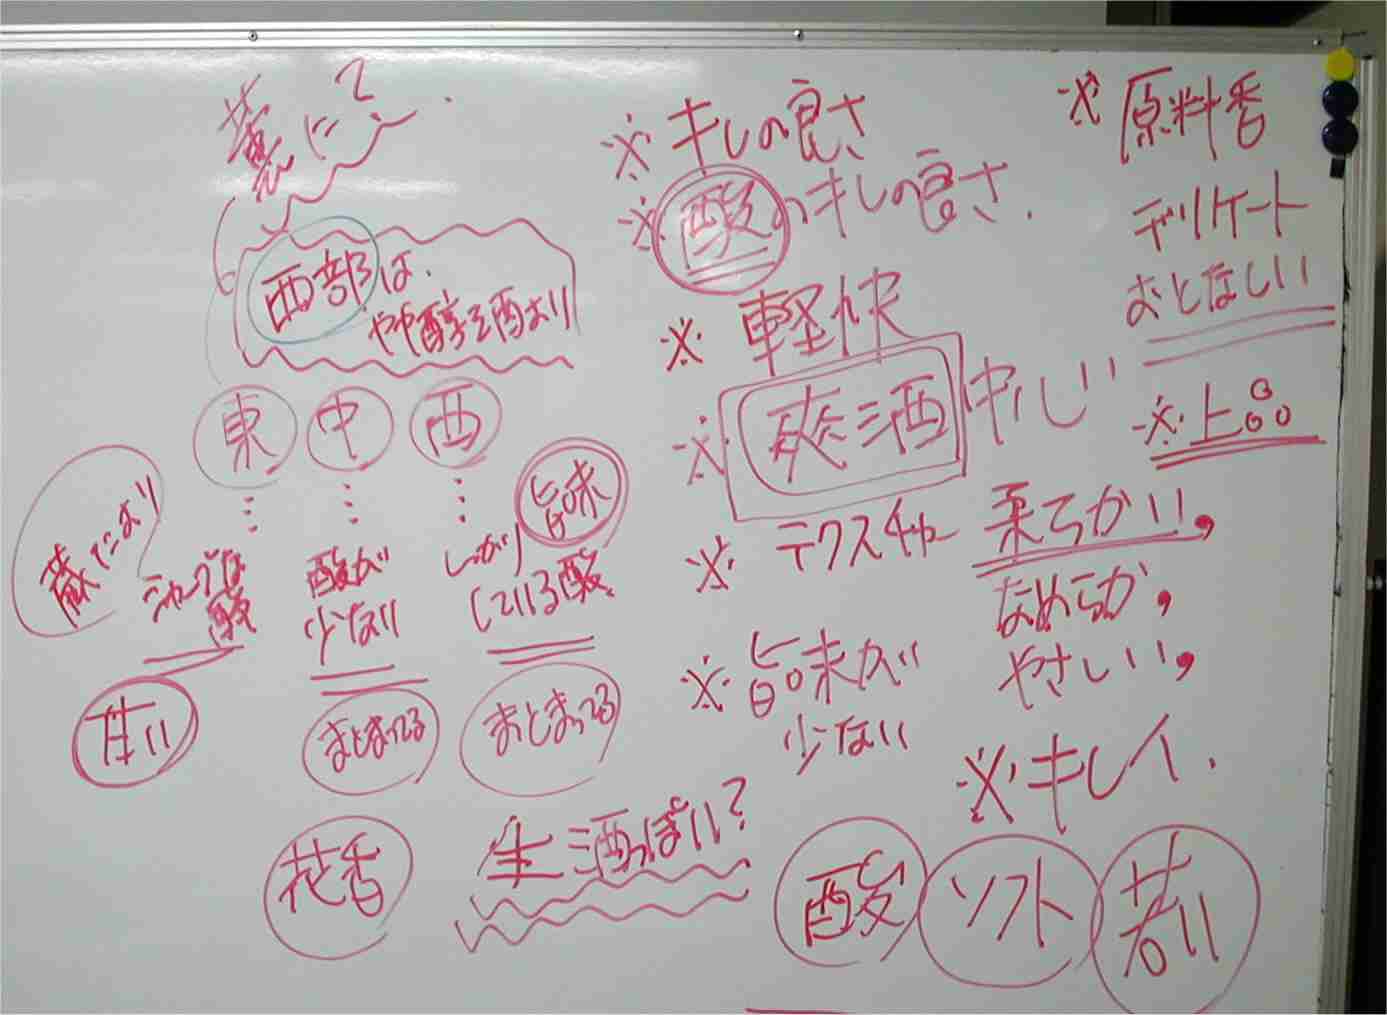 西部は、
やや醇酒より
東 中 西
蔵により
シャープな
酸
酸が
少ない
しっかり
している酸
旨味
甘い
まとまってる
まとまってる
花香
生酒っぽい?
※キレの良さ
※酸のキレの良さ.
※軽快
※爽酒
※テクスチャー 柔らかい,
なめらか,
やさしい,
※旨味が
少ない
※キレイ.
酸 ソフト 若い
※原料香
デリケート
おとなしい
※上品